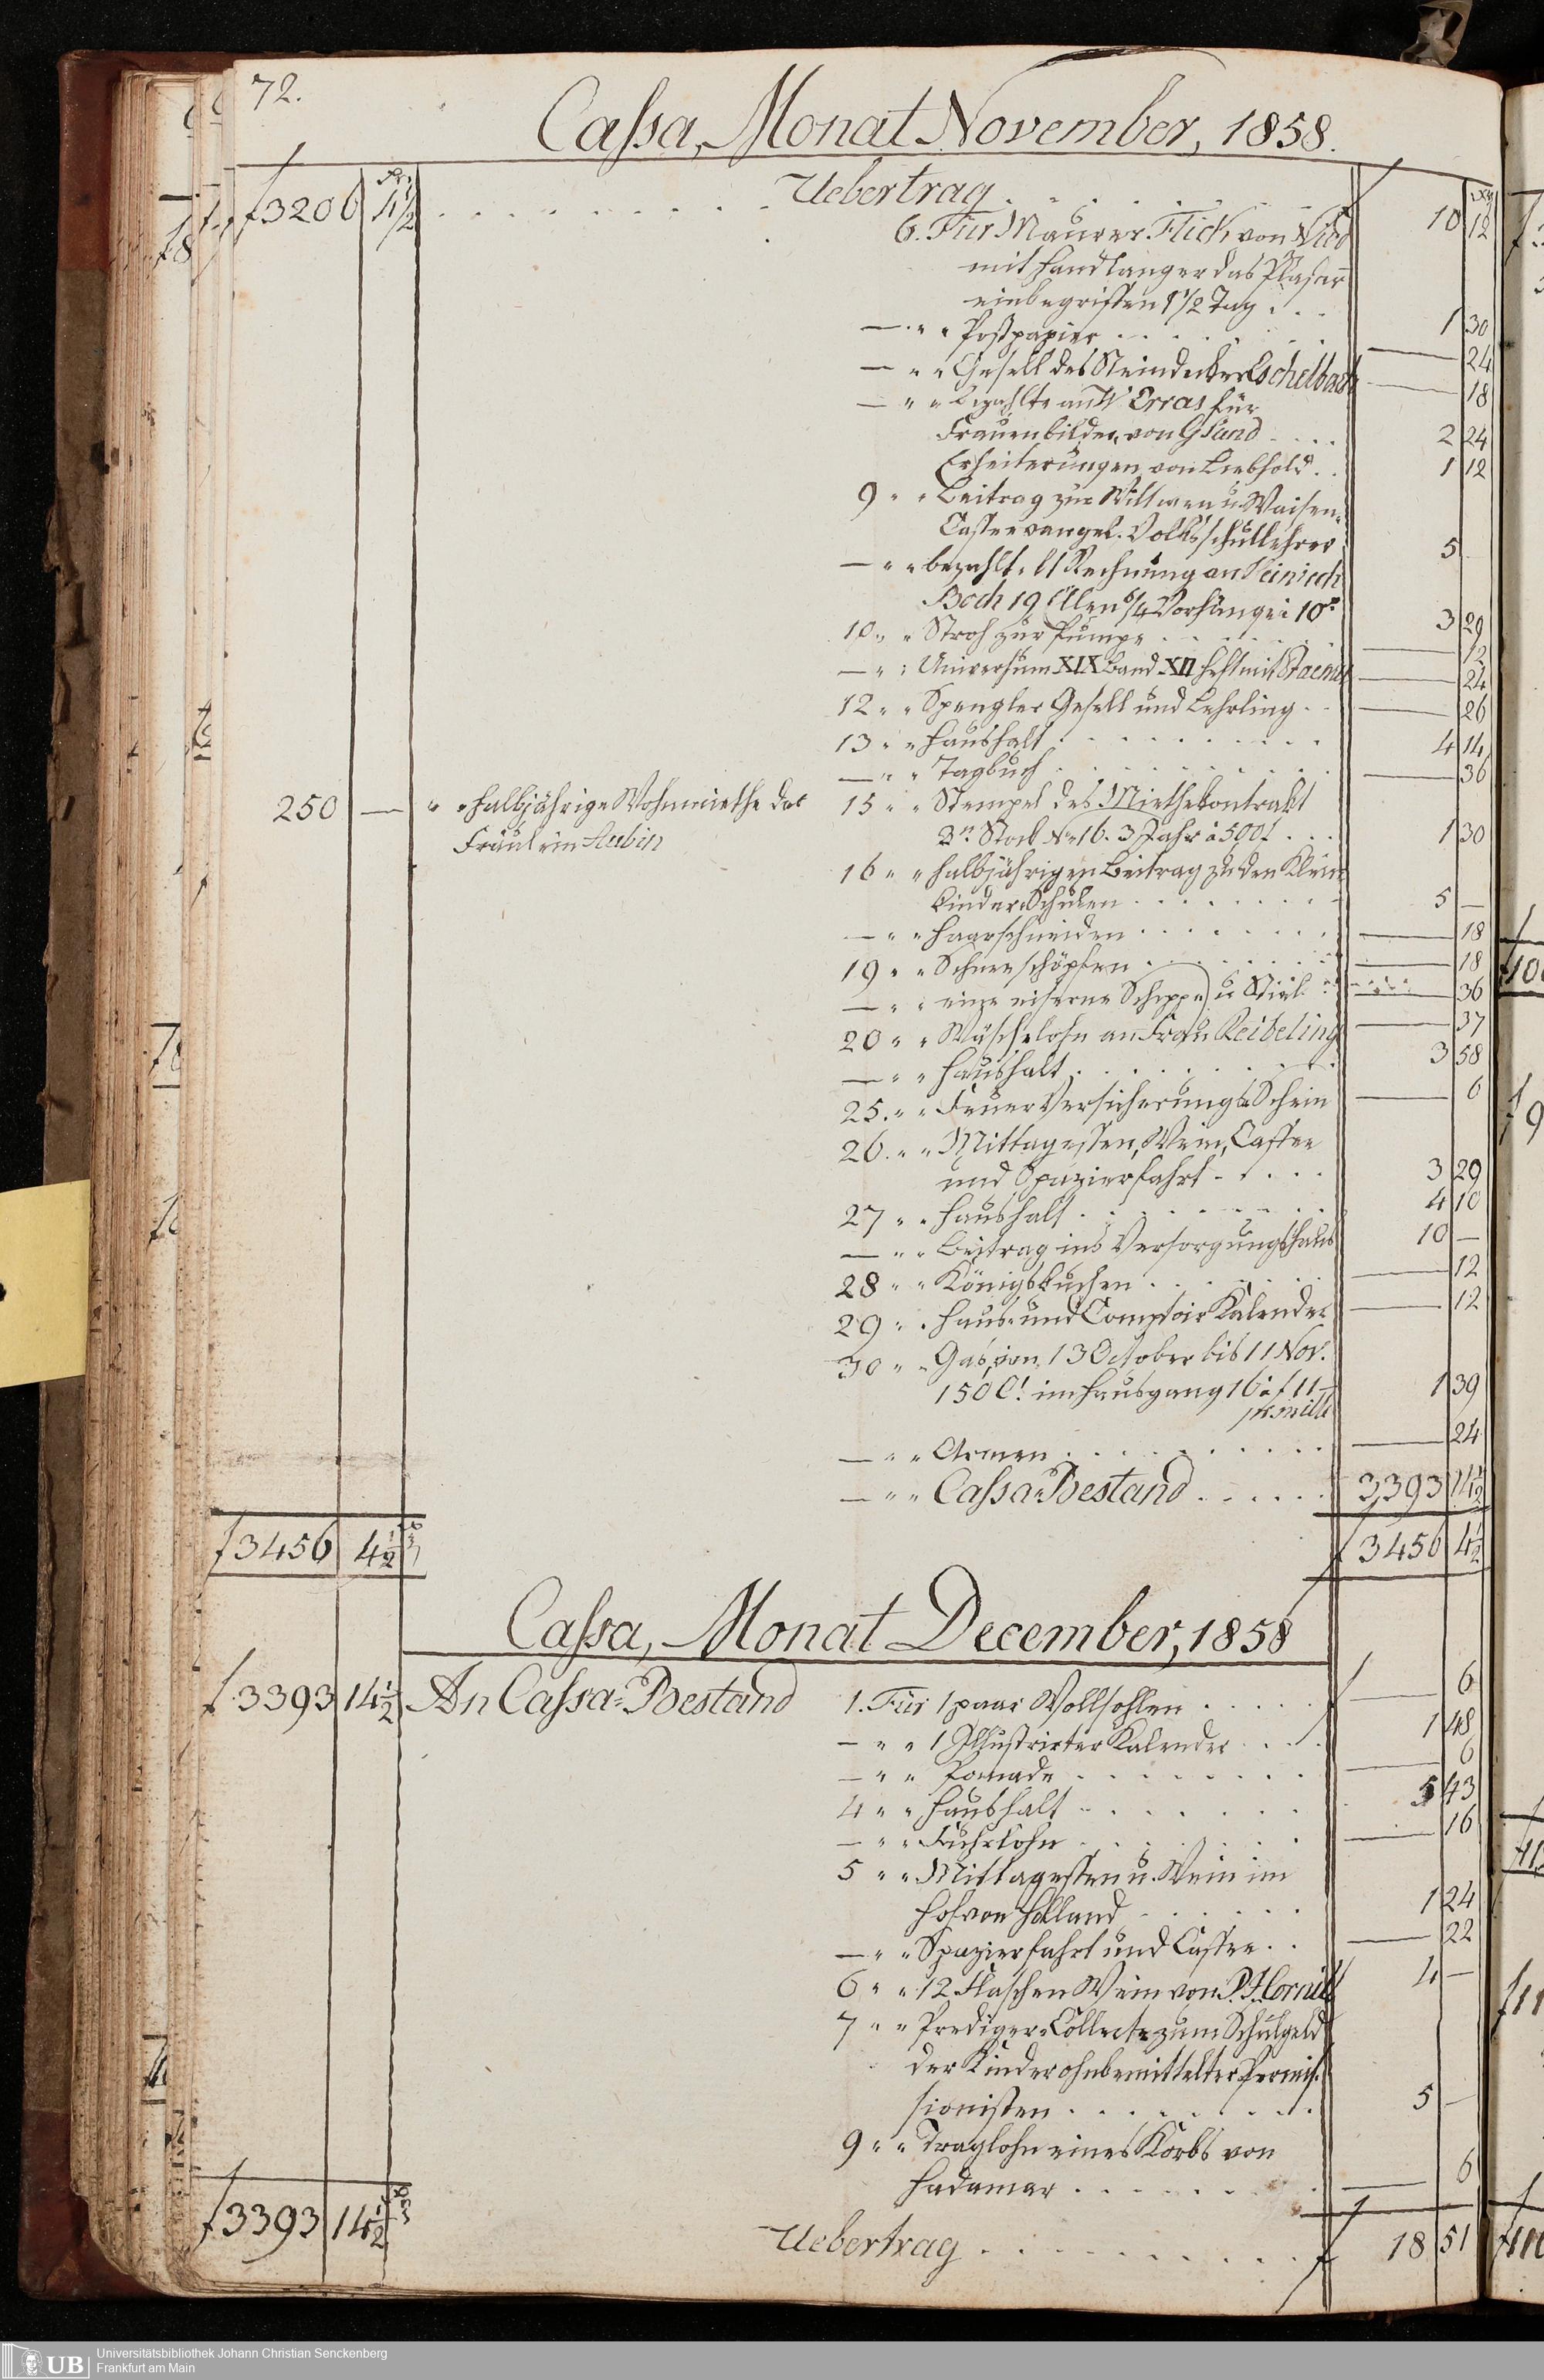 72.
Cassa, Monat November, 1858.
f 3206 4½ Uebertrag 10 12
6. Für Maurer Flick, von Nied
mit Handlanger das Plaster
einbegriffen 1½ Tag 1 30
— " " Postpapier — 24
— " " Gesell des Steindecker Eschelbach — 18
— " " bezahlte an W Erras für
Frauenbilder, von G Sand 2 24
Erheiterungen von Liebhold 1 12
9 " " Beitrag zur Wittwen u. Waisen-
Casse evangel. Volksschullehrer 5
— " " bezahlt. lt Rechnung an Heinrich
Boch 19 Ellen 6/4 Vorhänge 3 29
10 " " Stroh zur Pumpe — 12
— " " Universum XIX Band XII Heft mit — 24
12 " " Spengler Gesell und Lehrling — 26
13 " " Haushalt 4 14
— " " Tagbuch — 36
250 — " " halbjährige Wohnmiethe der
Fräulein Aubin
15 " " Stempel des Miethekontrakt
3n Stock No 16. 3 Jahr à 500f 1 30
16 " " halbjährigen Beitrag zu den Klein
kinder Schulen 5 —
— " " Haarschneiden — 18
19 " " Schnee schöpfen — 18
— " " eine eiserne Schippe u Stiel — 36
20 " " Wäschelohn an Frau Reibeling — 37
— " " Haushalt 3 58
25. " " Feuer Versicherungs Schein — 6
26. " " Mittagessen, Wein, Caffee
und Spazierfahrt 3 29
27 " " Haushalt 4 10
— " " Beitrag ins Versorgungshaus 10 —
28 " " Königskuchen — 12
29 " " Haus- und Comptoir Kalender — 12
30 " " Gas, von 13 October bis 11 Nov.
150 C! im Hausgang 16 à f 11 — 1 39
pr mille
— " " Armen — 24
— " " Cassa-Bestand 3393 14½
f 3456 4½ f 3456 4½
Cassa, Monat December, 1858
f 3393 14½ An Cassa-Bestand
1. Für 1 paar Wollsohlen — 6
— " " 1 Illustrirter Kalender 1 48
— " " Pomade — 6
4 " " Haushalt 5 43
— " " Fuhrlohn — 16
5 " " Mittagessen u. Wein im
Hof von Holland 1 24
— " " Spazierfahrt und Caffee — 22
6 " " 12 Flaschen Wein von P. J. Cornill 4 —
7 " " Prediger-Collecte zum Schulgeld
der Kinder ohnbemittelter Permis-
sionisten 5 —
9 " " Traglohn eines Korbs von
Hadamar — 6
f 3393 14½ Uebertrag f 18 51
UB
Universitätsbibliothek Johann Christian Senckenberg
Frankfurt am Main